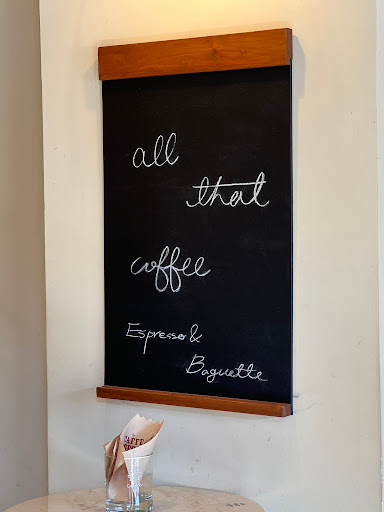 all
that
coffee
Espresso &
Baguette